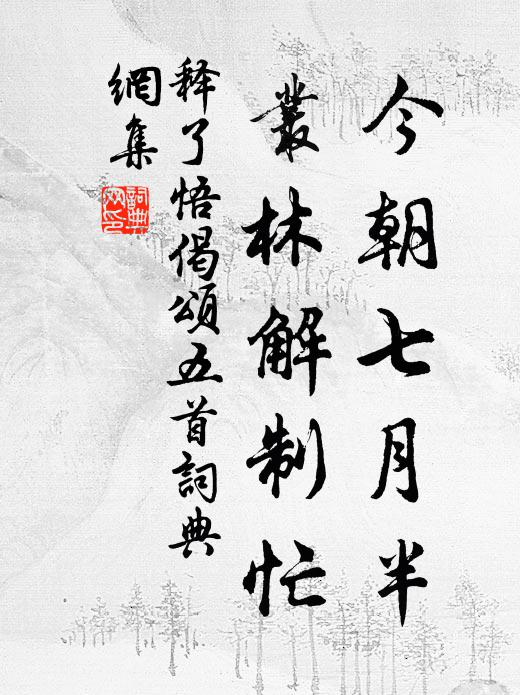 今朝七月半
叢林解制忙
释了悟偈頌五首詞典
網集
詞典
网印